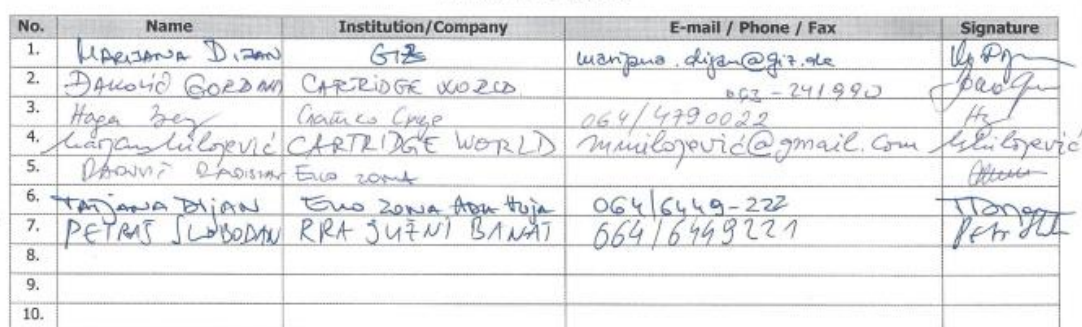 No. Name Institution/Company E-mail / Phone / Fax Signature
1. MARIJANA DIJAN GIZ marijana.dijan@giz.de
2. ĐAKOVIĆ GORDANA CARTRIDGE WORLD 063-241990
3. 064/4790022
4. Marjan Milojević CARTRIDGE WORLD mmilojević@gmail.com Milojević
5. EKO ZONA
6. TATJANA DIJAN EKO ZONA Ada Huja 064/6449-222
7. PETRAŠ SLOBODAN RRA JUŽNI BANAT 064/6449221
8.
9.
10.